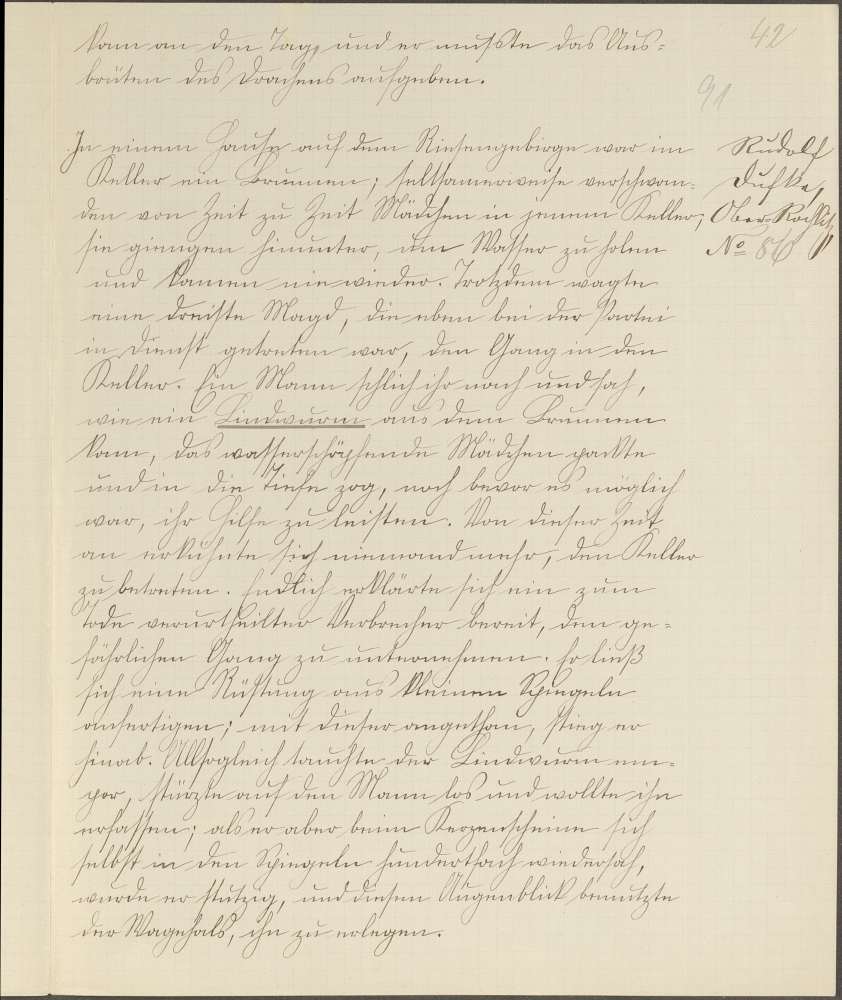 42
kam an den Tag, und er mußte das Aus=
brüten des Drachens aufgeben.
91
In einem Hause auf dem Riesengebirge war im
Keller ein Brunnen; seltsamerweise verschwan=
den von Zeit zu Zeit Mädchen in jenem Keller;
sie giengen hinunter, um Wasser zu holen
und kamen nie wieder. Trotzdem wagte
eine dreiste Magd, die eben bei der Partei
in Dienst getreten war, den Gang in den
Keller. Ein Mann schlich ihr nach und sah,
wie ein Lindwurm aus dem Brunnen
kam, das wasserschöpfende Mädchen packte
und in die Tiefe zog, noch bevor es möglich
war, ihr Hilfe zu leisten. Von dieser Zeit
an erkühnte sich niemand mehr, den Keller
zu betreten. Endlich erklärte sich ein zum
Tode verurtheilter Verbrecher bereit, den ge=
fährlichen Gang zu unternehmen. Er ließ
sich eine Rüstung aus kleinen Spiegeln
anfertigen; mit dieser angethan, stieg er
hinab. Allsogleich tauchte der Lindwurm em=
por, stürzte auf den Mann los und wollte ihn
erfassen; als er aber beim Kerzenscheine sich
selbst in den Spiegeln hundertfach wiedersah,
wurde er stutzig, und diesen Augenblick benutzte
der Wagehals, ihn zu erlegen.
Rudolf
Duschke,
Ober-Rochlitz
No 86